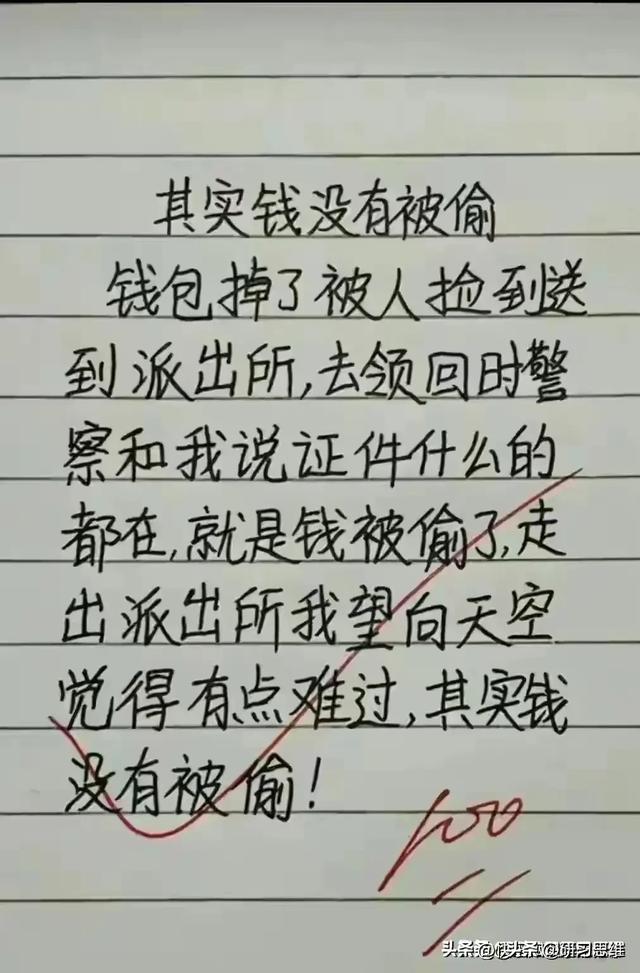 其实钱没有被偷
钱包掉了被人捡到送
到派出所,去领回时警
察和我说证件什么的
都在,就是钱被偷了,走
出派出所我望向天空
觉得有点难过,其实钱
没有被偷!
100